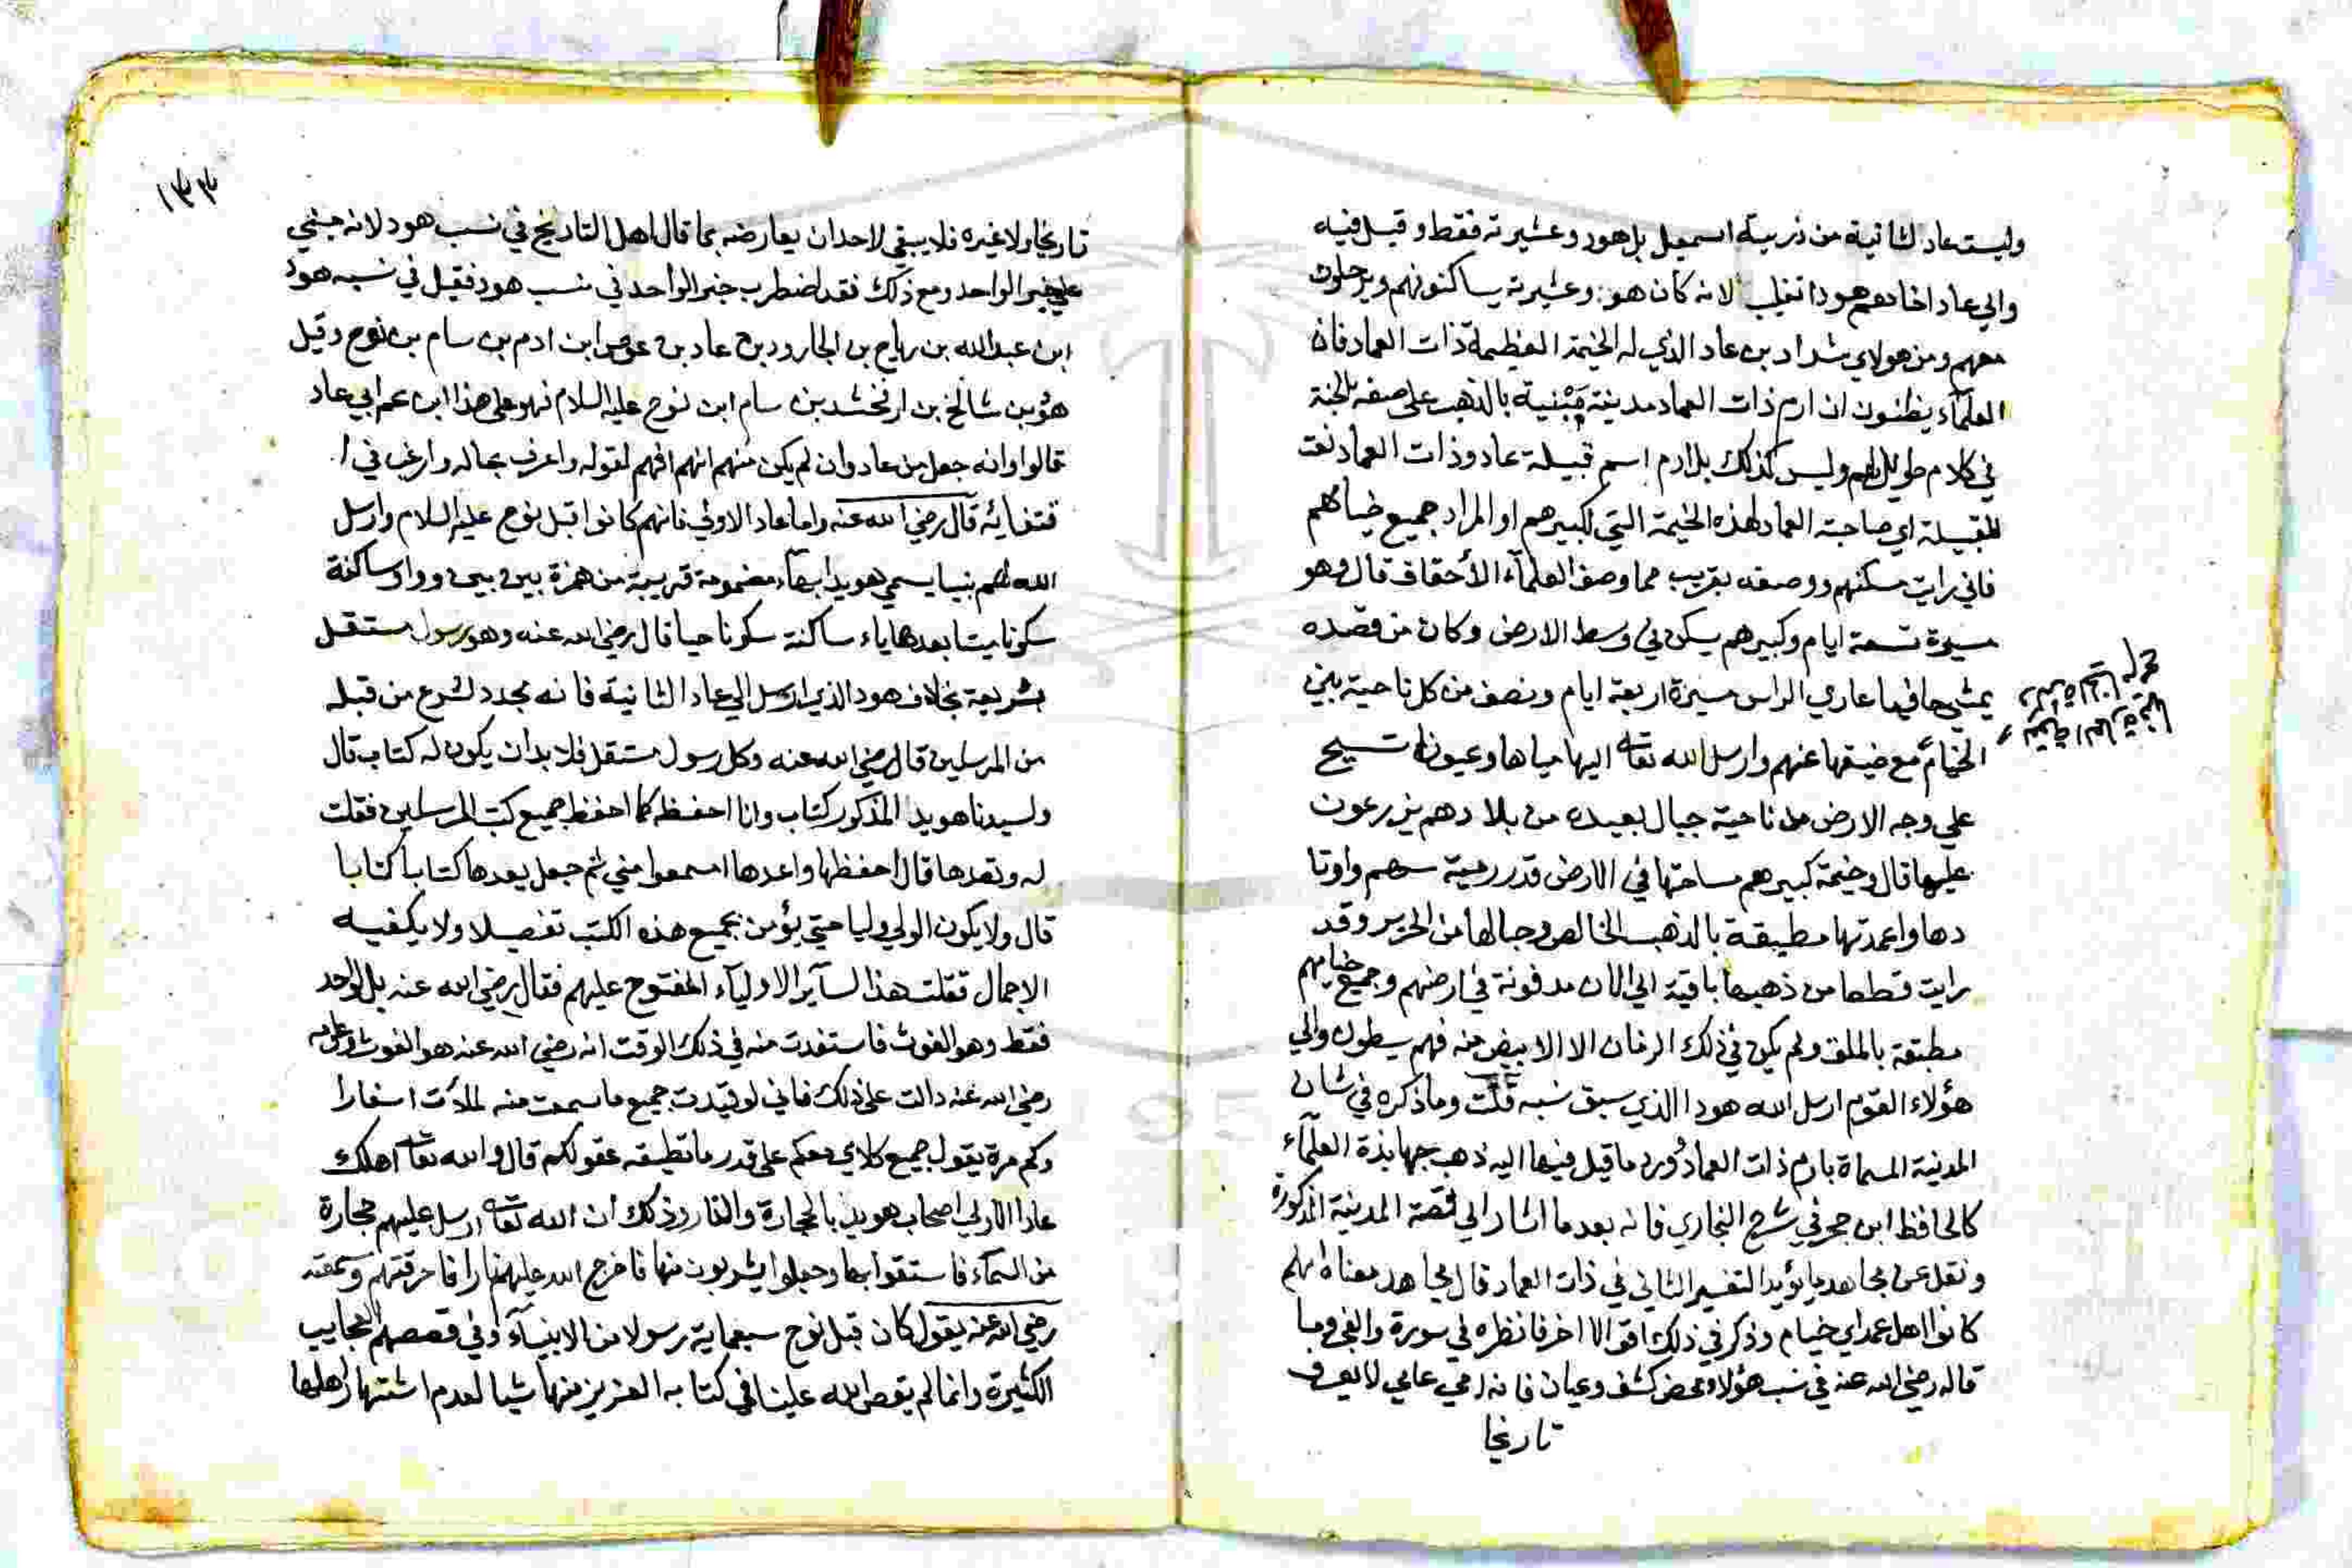 وليست عاد الثانية من ذرية اسمعيل بل هود وعشيرته فقط وقيل فيه
والي عاد اخاهم هودا تغليبا لانه كان هو وعشيرته يساكنونهم ويرحلون
معهم ومن هولاي شداد بن عاد الذي له الخيمة العظيمة ذات العماد فان
العلمآء يظنون ان ارم ذات العماد مدينة مبنية بالذهب على صفة الجنة
في كلام طويل لهم وليس كذلك بل ارم اسم قبيلة عاد وذات العماد نعت
للقبيلة اي صاحبة العماد لهذه الخيمة التي لكبيرهم او المراد جميع خيامهم
فاني رايت مسكنهم ووصفه بقريب مما وصف العلمآء الأحقاف قال وهو
مسيرة تسعة ايام وكبيرهم يسكن في وسط الارض وكان من قصده
يمشي حافيا عاري الراس مسيرة اربعة ايام ونصف من كل ناحية بين
الخيائم مع ضيقها عنهم وارسل الله تعا اليها مياها وعيونا تسيح
علي وجه الارض من ناحية جبال بعيده من بلادهم يزرعون
عليها قال وخيمة كبيرهم مساحتها في الارض قدر رمية سهم واوتا
دها واعمدتها مطبقة بالذهب الخالص وحبالها من الحرير وقد
رايت قطعا من ذهبها باقية الي الان مدفونة في ارضهم وجميع خيامهم
مطبقة بالملف ولم يكن في ذلك الزمان الا الابيض منه فهم يطلون والي
هؤلاء القوم ارسل الله هودا الذي سبق نسبه قلت وما ذكره في شان
المدينة المسماة بارم ذات العماد ورد ما قيل فيها اليه ذهب جهابذة العلمآء
كالحافظ ابن حجر في شرح البخاري فانه بعد ما اشار الي قصة المدينة المذكورة
ونقل عن مجاهد ما يؤيد التفسير الثاني في ذات العماد قال مجاهد معناه انهم
كانوا اهل عمد اي خيام وذكر في ذلك اقوالا اخر فانظره في سورة والفجر وما
قاله رضي الله عنه في نسب هؤلاء محض كشف وعيان فانه امي عامي لا يعرف
تاريخا
١٣٣
تاريخا ولا غيره فلا يبقي لاحد ان يعارضه بما قال اهل التاريخ في نسب هود لانه مبني
علي خبر الواحد ومع ذلك فقد اضطرب خبر الواحد في نسب هود فقيل في نسبه هود
ابن عبد الله بن رباح بن الجارود بن عاد بن عوص ابن ادم بن سام بن نوح وقيل
هو بن شالخ بن ارفخشد بن سام ابن نوح عليه السلام فهو على هذا ابن عم ابي عاد
قالوا وانه جعل من عاد وان لم يكن منهم انهم افهم لقوله واعرف بحاله وارغب في ا
قتفائه قال رضي الله عنه واما عاد الاولي فانهم كانوا قبل نوح عليه السلام وارسل
الله لهم نبيا يسمي هويدا بهآء مضمومة قريبة من همزة بين بين وواو ساكنة
سكونا ميتا بعدها ياء ساكنة سكونا حيا قال رضي الله عنه وهو رسول مستقل
بشريعة بخلاف هود الذي ارسل الي عاد الثانية فانه مجدد لشرع من قبله
من المرسلين قال رضي الله عنه وكل رسول مستقل فلا بد ان يكون له كتاب قال
ولسيدنا هويدا المذكور كتاب وانا احفظه كما احفظ جميع كتب المرسلين فقلت
له وتعدها قال احفظها واعدها اسمعوا مني ثم جعل يعدها كتابا كتابا
قال ولا يكون الولي وليا حتي يؤمن بجميع هذه الكتب تفصيلا ولا يكفيه
الاجمال فقلت هذا لسآير الاوليآء المفتوح عليهم فقال رضي الله عنه بل لواحد
فقط وهو الغوث فاستفدت منه في ذلك الوقت انه رضي الله عنه هو الغوث وعلومه
رضي الله عنه دالت على ذلك فاني لو قيدت جميع ما سمعت منه لملأت اسفارا
وكم مرة يقول جميع كلامي معكم على قدر ما تطيقه عقولكم قال والله تعا اهلك
عادا الاولي اصحاب هويدا بالحجارة والنار وذلك ان الله تعا ارسل عليهم حجارة
من السمآء فاستقوا بها وجعلوا يشربون منها فاخرج الله عليهم نارا فاحرقتهم وسمعته
رضي الله عنه يقول كان قبل نوح سبعماية رسول من الانبيآء وفي قصصهم العجايب
الكثيرة وانما لم يقص الله علينا في كتابه العزيز منها شيا لعدم اشتهار اهلها